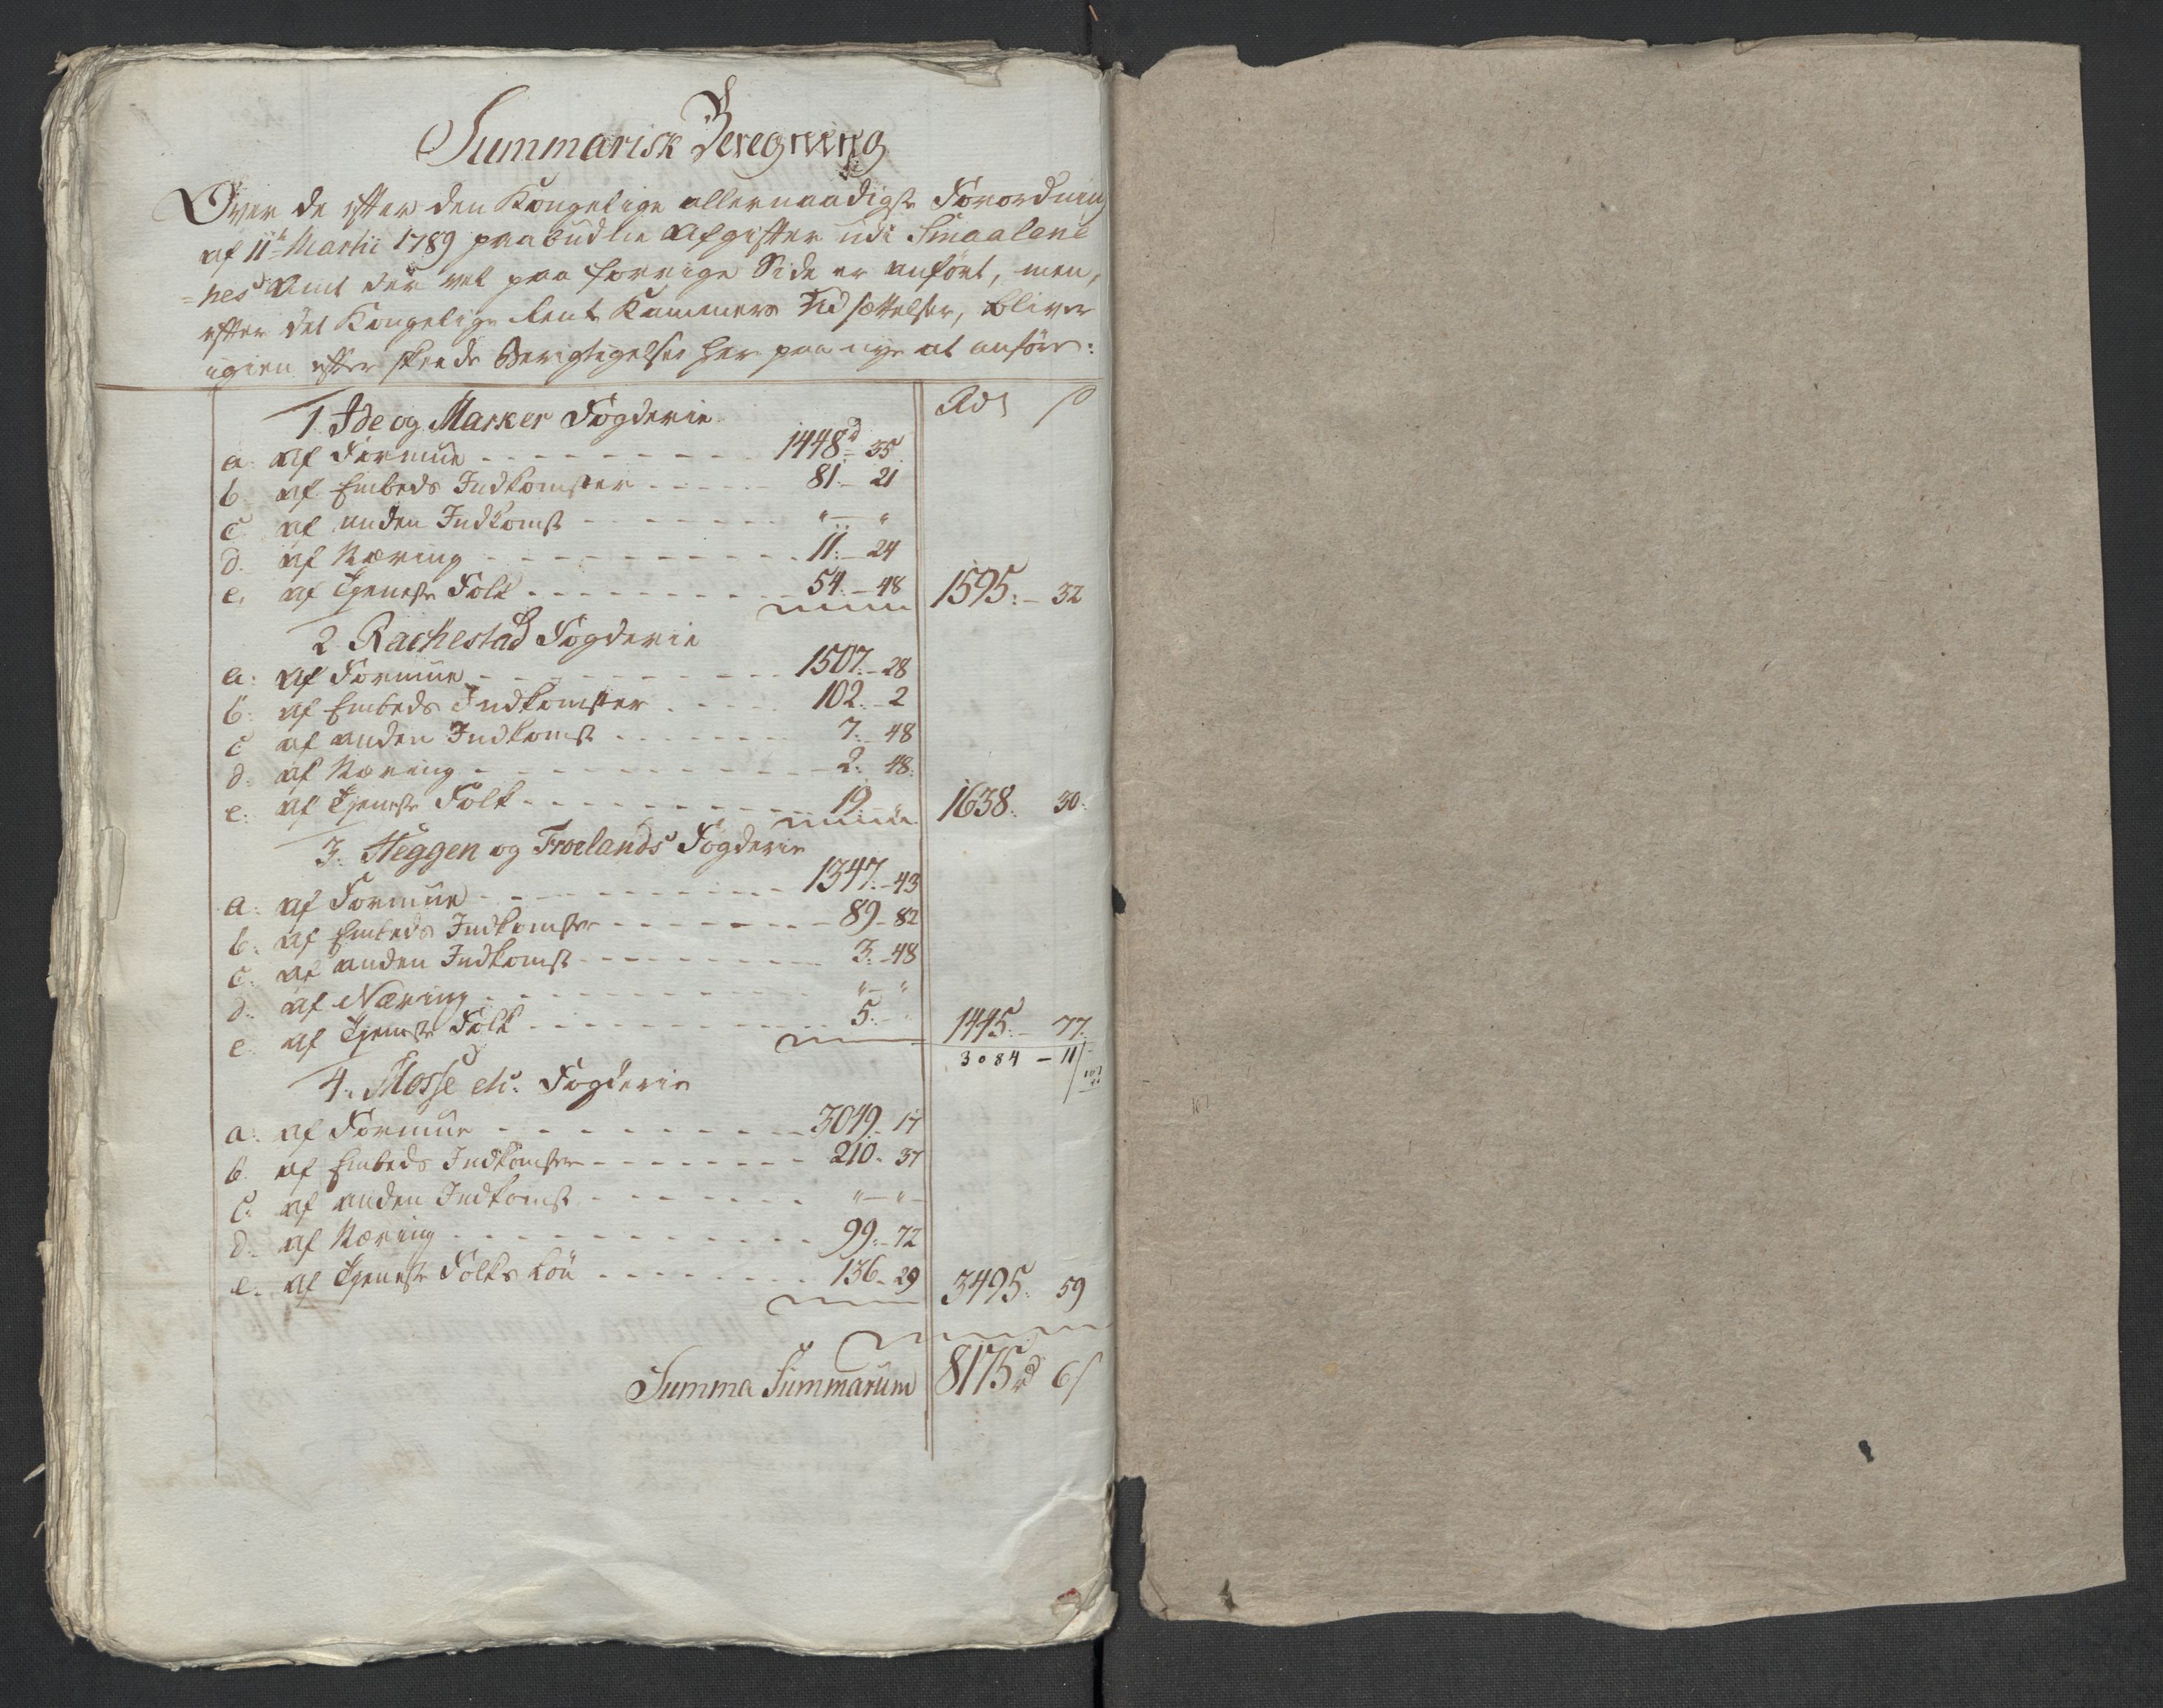 Summarisk Beregning
Over de efter den Kongelige allernaadigste Forordning
af 11te Martii 1789 paabudne Afgifter udi Smaalene
=nes Amt der vel paa forrige Side er anført, men,
efter det Kongelige Rente Kammers Udsættelser, bliver
igien efter skeede Berigtigelser her paa nye at anføre:
Rdl ß
1 Ide og Marker Fogderie
a. af Formue - - - - 1448d 35
b. af Embeds Indkomster - - - - 81. - 21
c. af anden Indkomst - - - - " - "
d. af Næring - - - - 11. - 24
e. af Tjeneste Folk - - - - 54. - 48 1595. - 32
2. Rachestad Fogderie
a. af Formue - - - - 1507. - 28
b. af Embeds Indkomster - - - - 102. - 2
c. af anden Indkomst - - - - 7. - 48
d. af Næring - - - - 2. 48.
e. af Tjeneste Folk - - - - 19. - " 1638. 30.
3. Heggen og Froelands Fogderie
a. af Formue - - - - 1347. - 43
b. af Embeds Indkomster - - - - 89 - 82
c. af anden Indkomst - - - - 3. - 48
d. af Næring - - - - " - "
e. af Tjeneste Folk - - - - 5. - " 1445. - 77.
3084 - 11
4. Mosse etc. Fogderie
a. af Formue - - - - 3049. - 17
b. af Embeds Indkomster - - - - 210. 37
c. af anden Indkomst - - - - " - " -
d. af Næring - - - - 99. - 72
e. af Tjeneste Folks Løn - - - - 136 - 29 3495. 59
Summa Summarum 8175rd 6ß